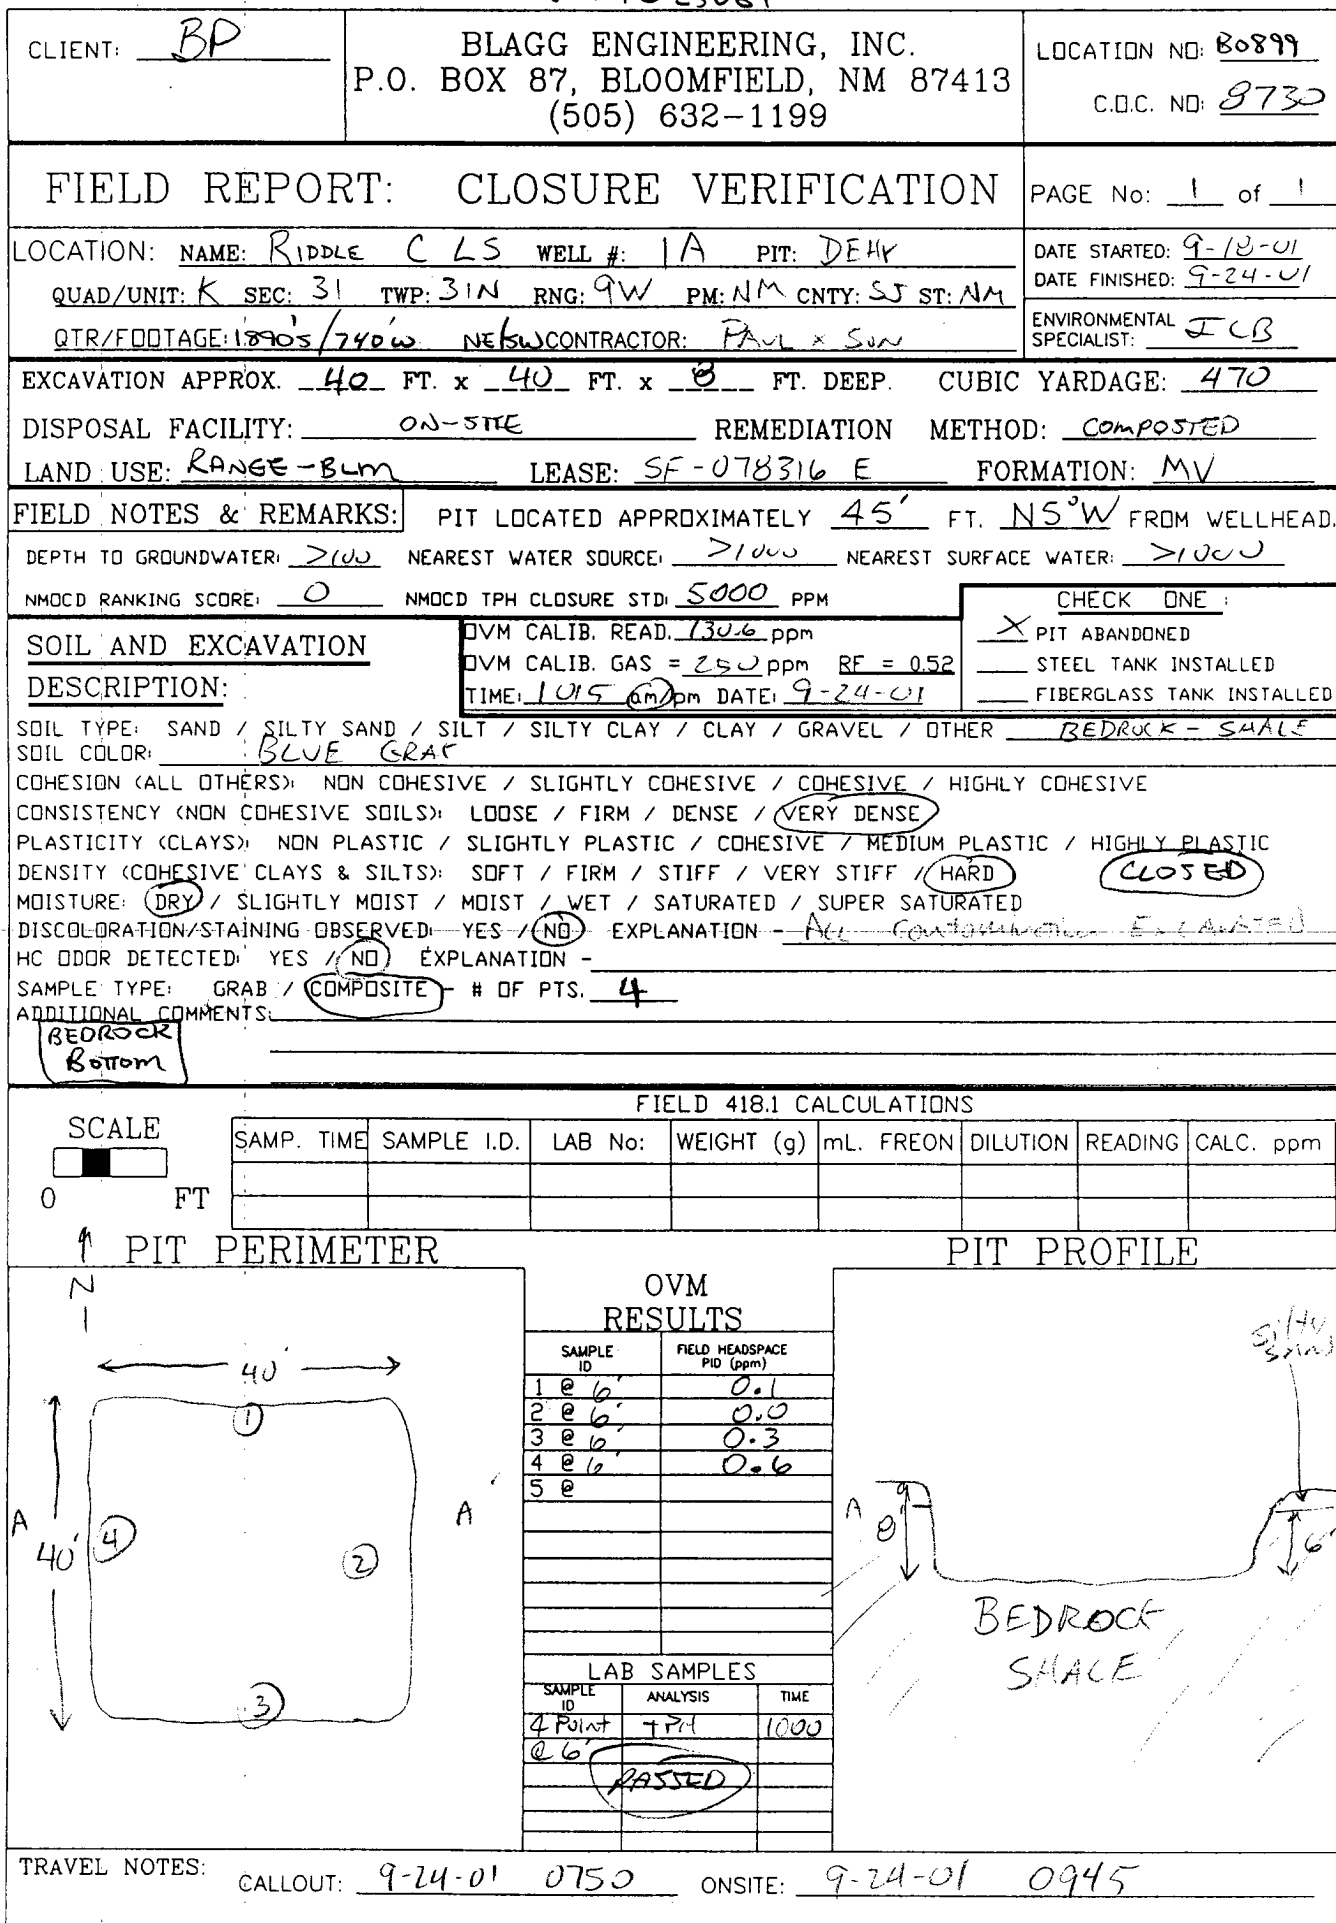 CLIENT: BP
BLAGG ENGINEERING, INC.
P.O. BOX 87, BLOOMFIELD, NM 87413
(505) 632-1199
LOCATION NO: B0899
C.O.C. NO: 8730
FIELD REPORT: CLOSURE VERIFICATION
PAGE No: 1 of 1
LOCATION: NAME: RIDDLE C LS WELL #: 1A PIT: DEHY
QUAD/UNIT: K SEC: 31 TWP: 31N RNG: 9W PM: NM CNTY: SJ ST: NM
QTR/FOOTAGE: 1890'S/740'W NE/SW CONTRACTOR: PAUL & SON
DATE STARTED: 9-18-01
DATE FINISHED: 9-24-01
ENVIRONMENTAL
SPECIALIST: JCB
EXCAVATION APPROX. 40 FT. x 40 FT. x 8 FT. DEEP. CUBIC YARDAGE: 470
DISPOSAL FACILITY: ON-SITE REMEDIATION METHOD: COMPOSTED
LAND USE: RANGE-BLM LEASE: SF-078316 E FORMATION: MV
FIELD NOTES & REMARKS: PIT LOCATED APPROXIMATELY 45' FT. N5°W FROM WELLHEAD.
DEPTH TO GROUNDWATER: >100 NEAREST WATER SOURCE: >1000 NEAREST SURFACE WATER: >1000
NMOCD RANKING SCORE: 0 NMOCD TPH CLOSURE STD: 5000 PPM
CHECK ONE :
X PIT ABANDONED
STEEL TANK INSTALLED
FIBERGLASS TANK INSTALLED
SOIL AND EXCAVATION
DESCRIPTION:
OVM CALIB. READ. 130.6 ppm
OVM CALIB. GAS = 250 ppm RF = 0.52
TIME: 1015 am/pm DATE: 9-24-01
SOIL TYPE: SAND / SILTY SAND / SILT / SILTY CLAY / CLAY / GRAVEL / OTHER BEDROCK - SHALE
SOIL COLOR: BLUE GRAY
COHESION (ALL OTHERS): NON COHESIVE / SLIGHTLY COHESIVE / COHESIVE / HIGHLY COHESIVE
CONSISTENCY (NON COHESIVE SOILS): LOOSE / FIRM / DENSE / VERY DENSE
PLASTICITY (CLAYS): NON PLASTIC / SLIGHTLY PLASTIC / COHESIVE / MEDIUM PLASTIC / HIGHLY PLASTIC
DENSITY (COHESIVE CLAYS & SILTS): SOFT / FIRM / STIFF / VERY STIFF / HARD CLOSED
MOISTURE: DRY / SLIGHTLY MOIST / MOIST / WET / SATURATED / SUPER SATURATED
DISCOLORATION/STAINING OBSERVED: YES / NO EXPLANATION - ALL Contamination EXCAVATED
HC ODOR DETECTED: YES / NO EXPLANATION -
SAMPLE TYPE: GRAB / COMPOSITE - # OF PTS. 4
ADDITIONAL COMMENTS:
BEDROCK
Bottom
FIELD 418.1 CALCULATIONS
SCALE
0 FT
SAMP. TIME SAMPLE I.D. LAB No: WEIGHT (g) mL. FREON DILUTION READING CALC. ppm
PIT PERIMETER
N
40'
1
A 40' 4 2 A'
3
OVM
RESULTS
SAMPLE ID FIELD HEADSPACE PID (ppm)
1 @ 6' 0.1
2 @ 6' 0.0
3 @ 6' 0.3
4 @ 6' 0.6
5 @
LAB SAMPLES
SAMPLE ID ANALYSIS TIME
4 Point TPH 1000
@ 6'
PASSED
PIT PROFILE
Silty
Sand
A 8' 6'
BEDROCK
SHALE
TRAVEL NOTES: CALLOUT: 9-24-01 0750 ONSITE: 9-24-01 0945